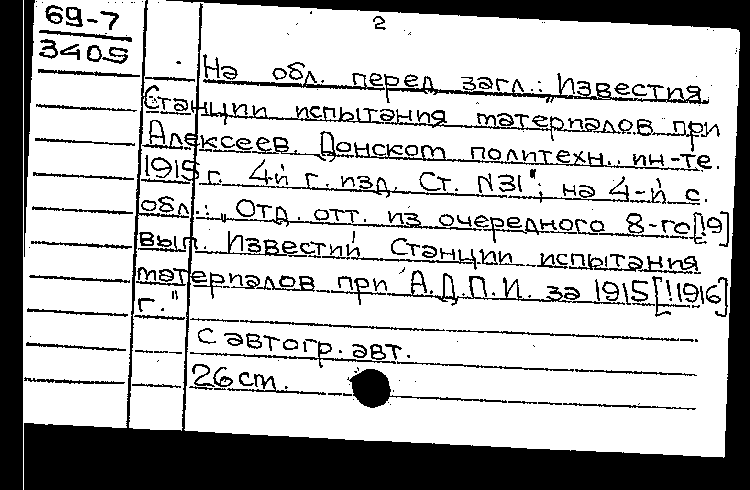 69-7
3405
2
На обл. перед загл.: „Известия
Станции испытания материалов при
Алексеев. Донском политехн.. ин-те.
1915 г. 4й г. изд. Ст. №31"; на 4-й с.
обл.: „Отд. отт. из очередного 8-го[!9]
вып. Известий Станции испытания
материалов при А.Д.П.И. за 1915[!1916]
г."
С автогр. авт.
26 см.